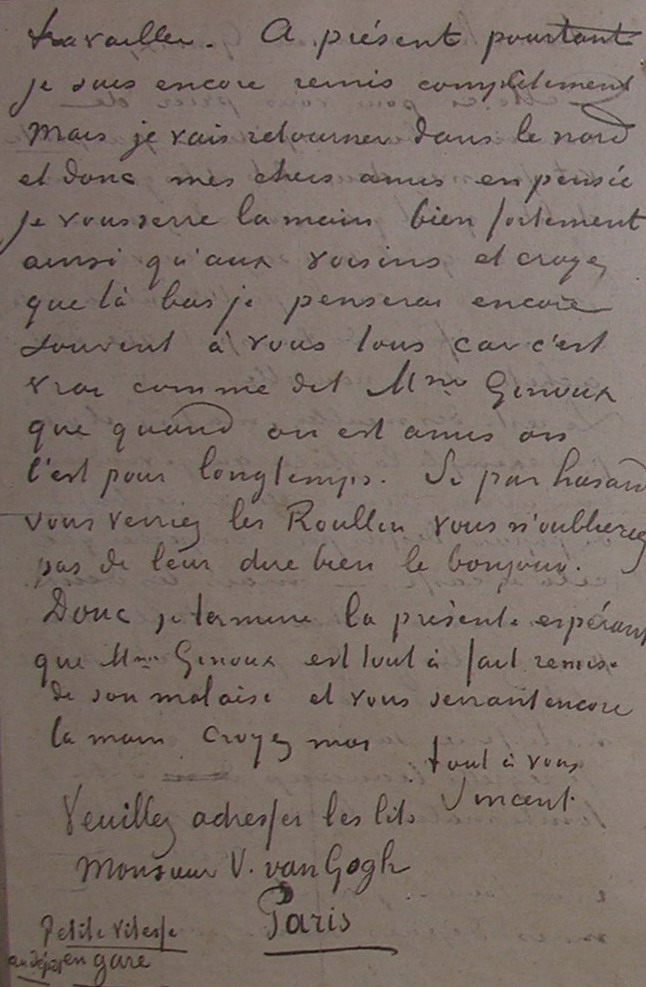 travailler. A présent pourtant
je suis encore remis complètement
Mais je vais retourner dans le nord
et donc mes chers amis en pensée
je vous serre la main bien fortement
ainsi qu'aux voisins et croyez
que là bas je penserai encore
souvent à vous tous car c'est
vrai comme dit Mme Ginoux
que quand on est amis on
l'est pour longtemps. Si par hasard
vous verriez les Roullin vous n'oublierez
pas de leur dire bien le bonjour.
Donc je termine la présente espérant
que Mme Ginoux est tout à fait remise
de son malaise et vous serrant encore
la main Croyez moi
tout à vous
Vincent.
Veuillez adresser les lits
Monsieur V. van Gogh
Paris
Petite vitesse
au dépot en gare